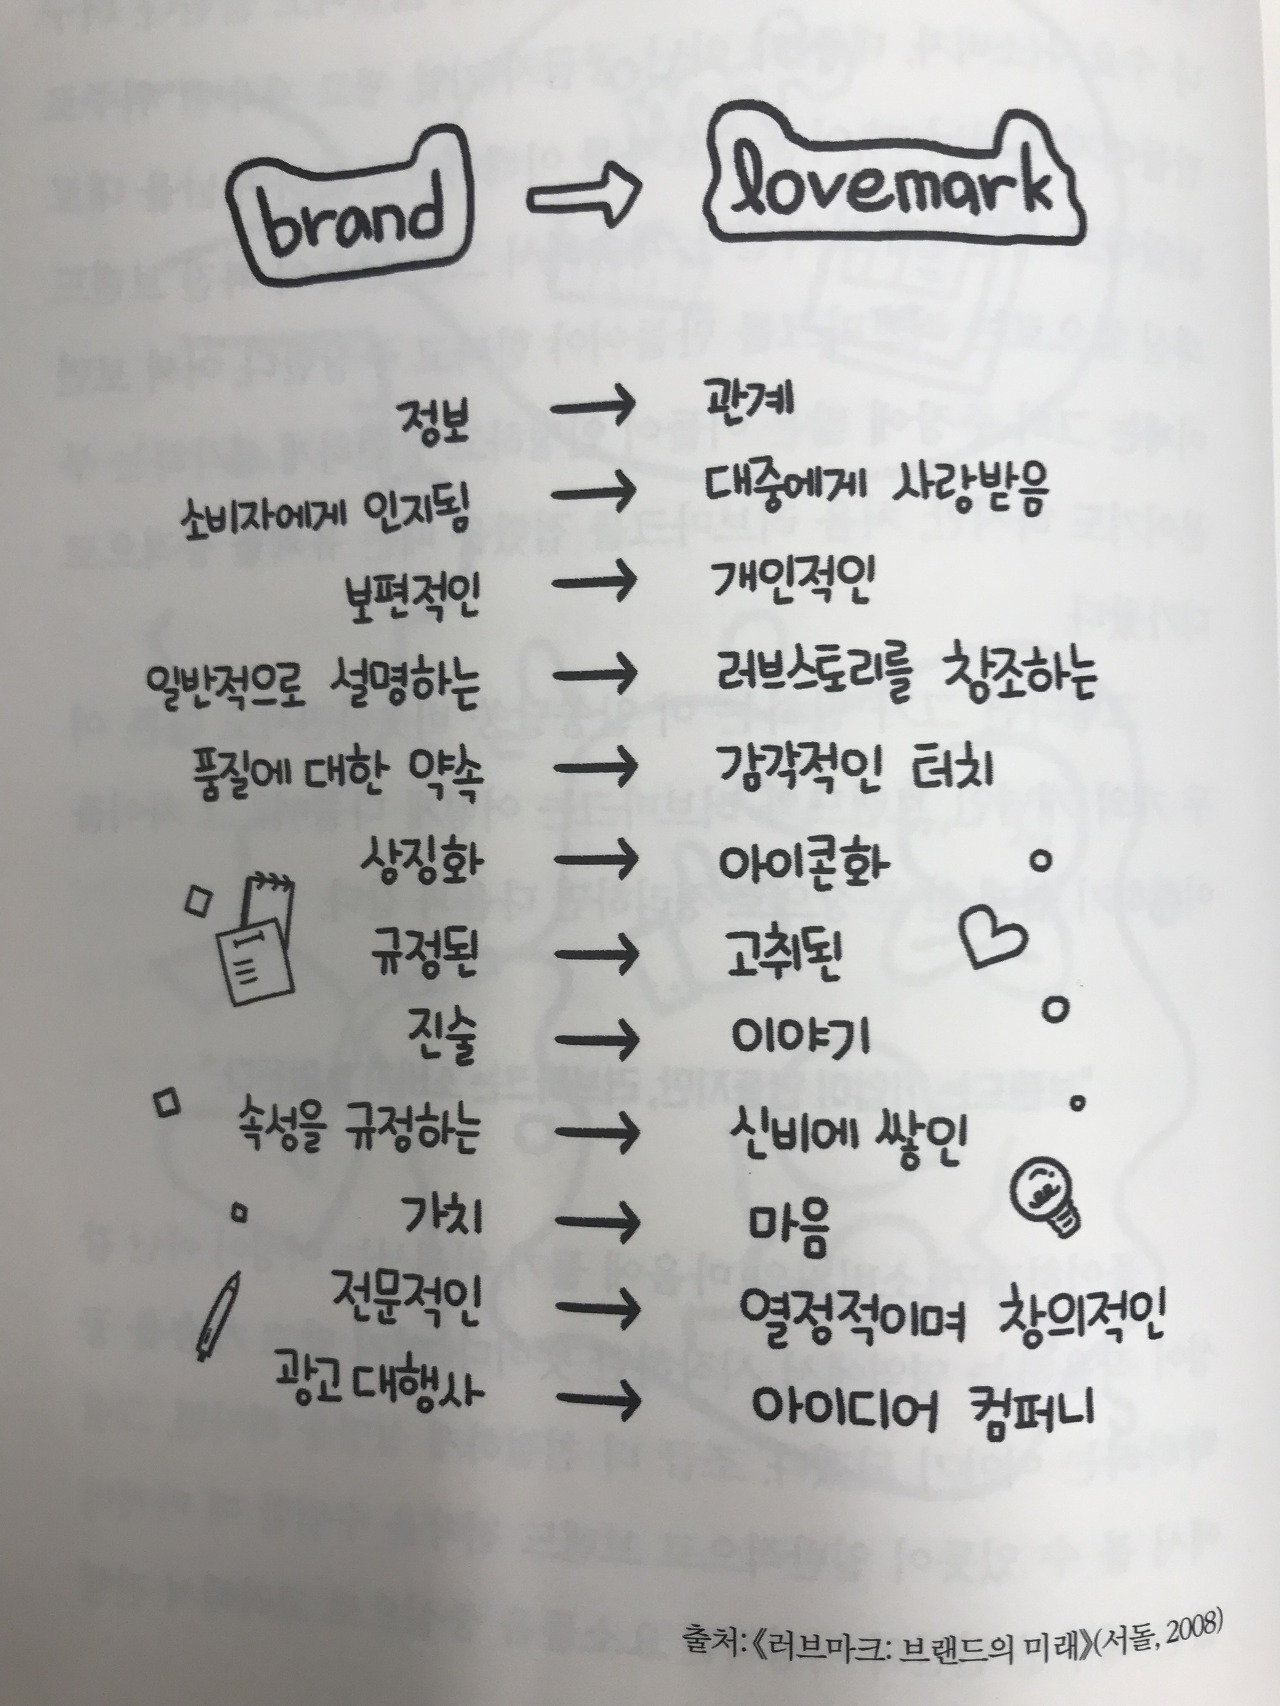 brand → lovemark
정보 → 관계
소비자에게 인지됨 → 대중에게 사랑받음
보편적인 → 개인적인
일반적으로 설명하는 → 러브스토리를 창조하는
품질에 대한 약속 → 감각적인 터치
상징화 → 아이콘화
규정된 → 고취된
진술 → 이야기
속성을 규정하는 → 신비에 쌓인
가치 → 마음
전문적인 → 열정적이며 창의적인
광고대행사 → 아이디어 컴퍼니
출처: 《러브마크: 브랜드의 미래》(서돌, 2008)